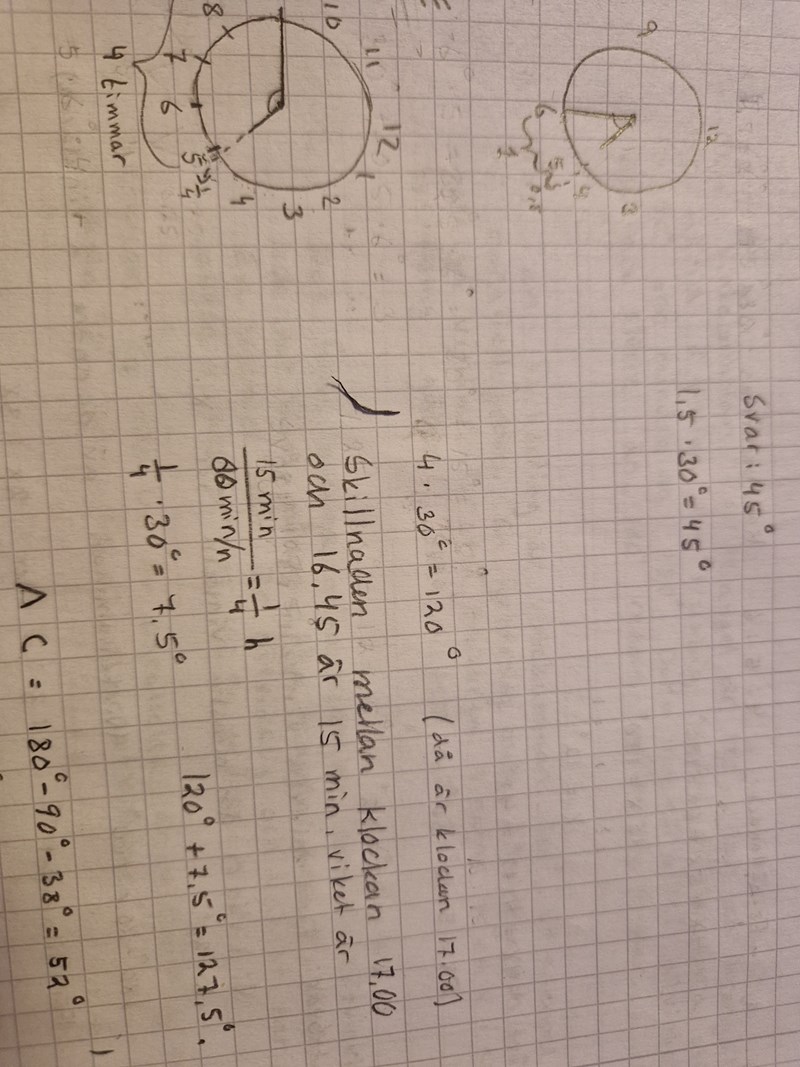 Svar: 45°
1,5 · 30° = 45°
9
12
6
3
4
5
4 · 30° = 120° (då är klockan 17.00)
Skillnaden mellan klockan 17,00
och 16,45 är 15 min, vilket är
15 min
60 min/h
= 1/4 h
1/4 · 30° = 7,5°
120° + 7,5° = 127,5°.
8
10
11
7
12
6
1
5
4
3
2
1/4
4 timmar
∧ C = 180° - 90° - 38° = 52°